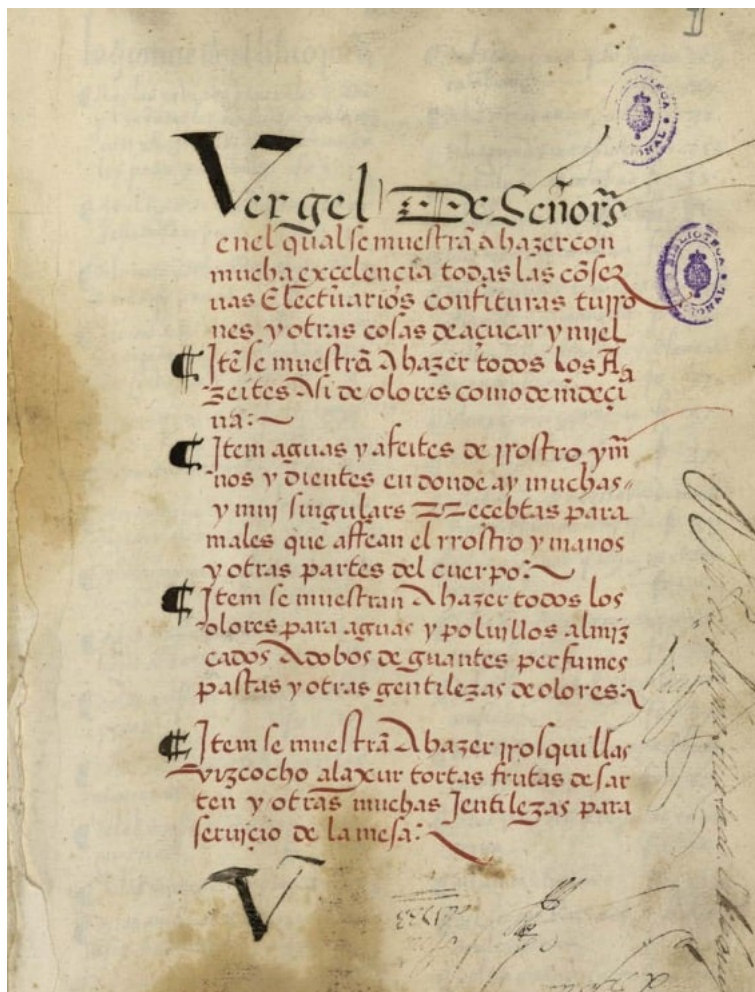 II
Vergel De Señor̃s
en el qual se muestrã A hazer con
mucha excelencia todas las cõser
uas Electuarios confituras turro
nes y otras cosas de açucar y miel
¶ Itẽ se muestrã A hazer todos los Aa
zeites Asi de olores como de mẽdeçi
na:~
¶ Item aguas y afeites de rrostro y mã
nos y dientes en donde ay muchas
y mui singulars Recebtas para
males que affean el rrostro y manos
y otras partes del cuerpo:~
¶ Item se muestran A hazer todos los
olores para aguas y poluillos almiz
cados Adobos de guantes perfumes
pastas y otras gentilezas de olores:~
¶ Item se muestrã A hazer rrosquillas
vizcocho alaxur tortas frutas de sar
ten y otras muchas Jentilezas para
seruiçio de la mesa:~
V
BIBLIOTECA
NACIONAL
BIBLIOTECA
NACIONAL